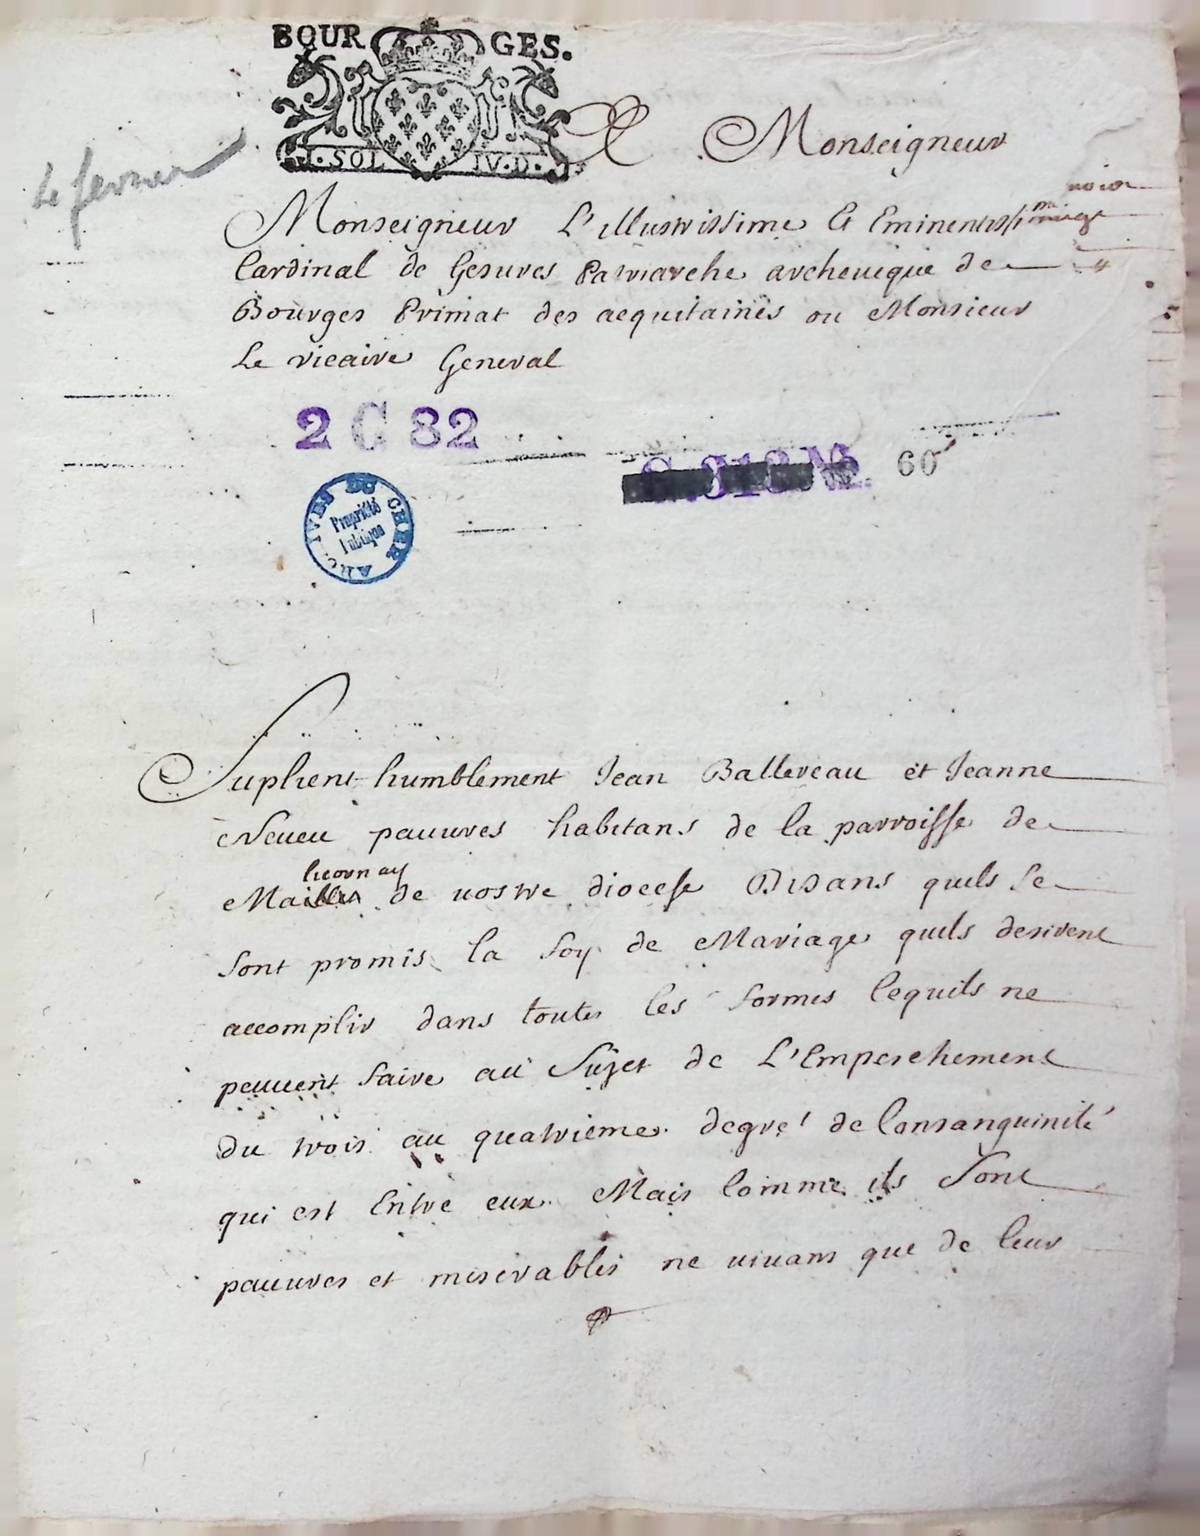 BOURGES.
I. SOL IV. D.
4 fevrier
A Monseigneur
Monseigneur L'illustrissime Et Eminentissime
Cardinal de Gesvres Patriarche archeuêque de
Bourges Primat des aequitaines ou Monsieur
Le vicaire General
2 C 82
60
ARCHIVES DU CHER
Propriété
Publique
Suplient humblement Jean Ballereau et Jeanne
Neueu pauures habitans de la parroisse de
licornay
Mai de uostre diocese Disans quils se
sont promis la foy de Mariage quils desirent
accomplir dans toutes les formes lequils ne
peuuent faire au sujet de L'Emperchement
du trois au quatrieme degré de Consanguinité
qui est Entre eux Mais Comme ils sont
pauures et miserables ne uiuans que de leur